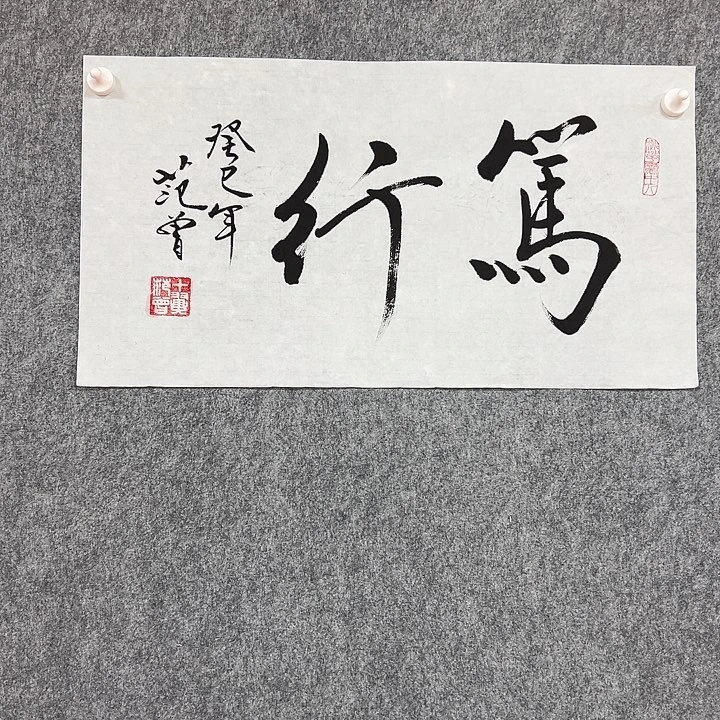 篤行
癸巳年
范曾